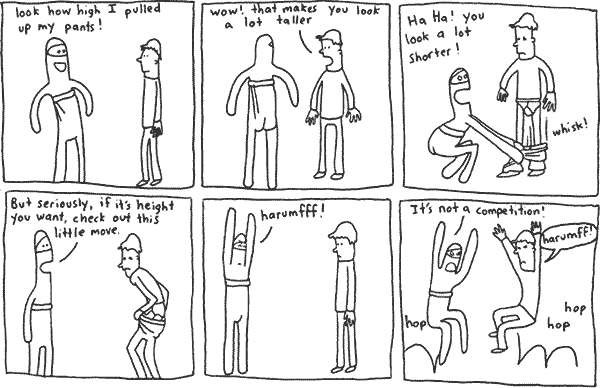 look how high I pulled
up my pants!
wow! that makes you look
a lot taller
Ha Ha! you
look a lot
shorter!
whisk!
But seriously, if it's height
you want, check out this
little move.
harumfff!
It's not a competition!
harumff!
hop
hop
hop